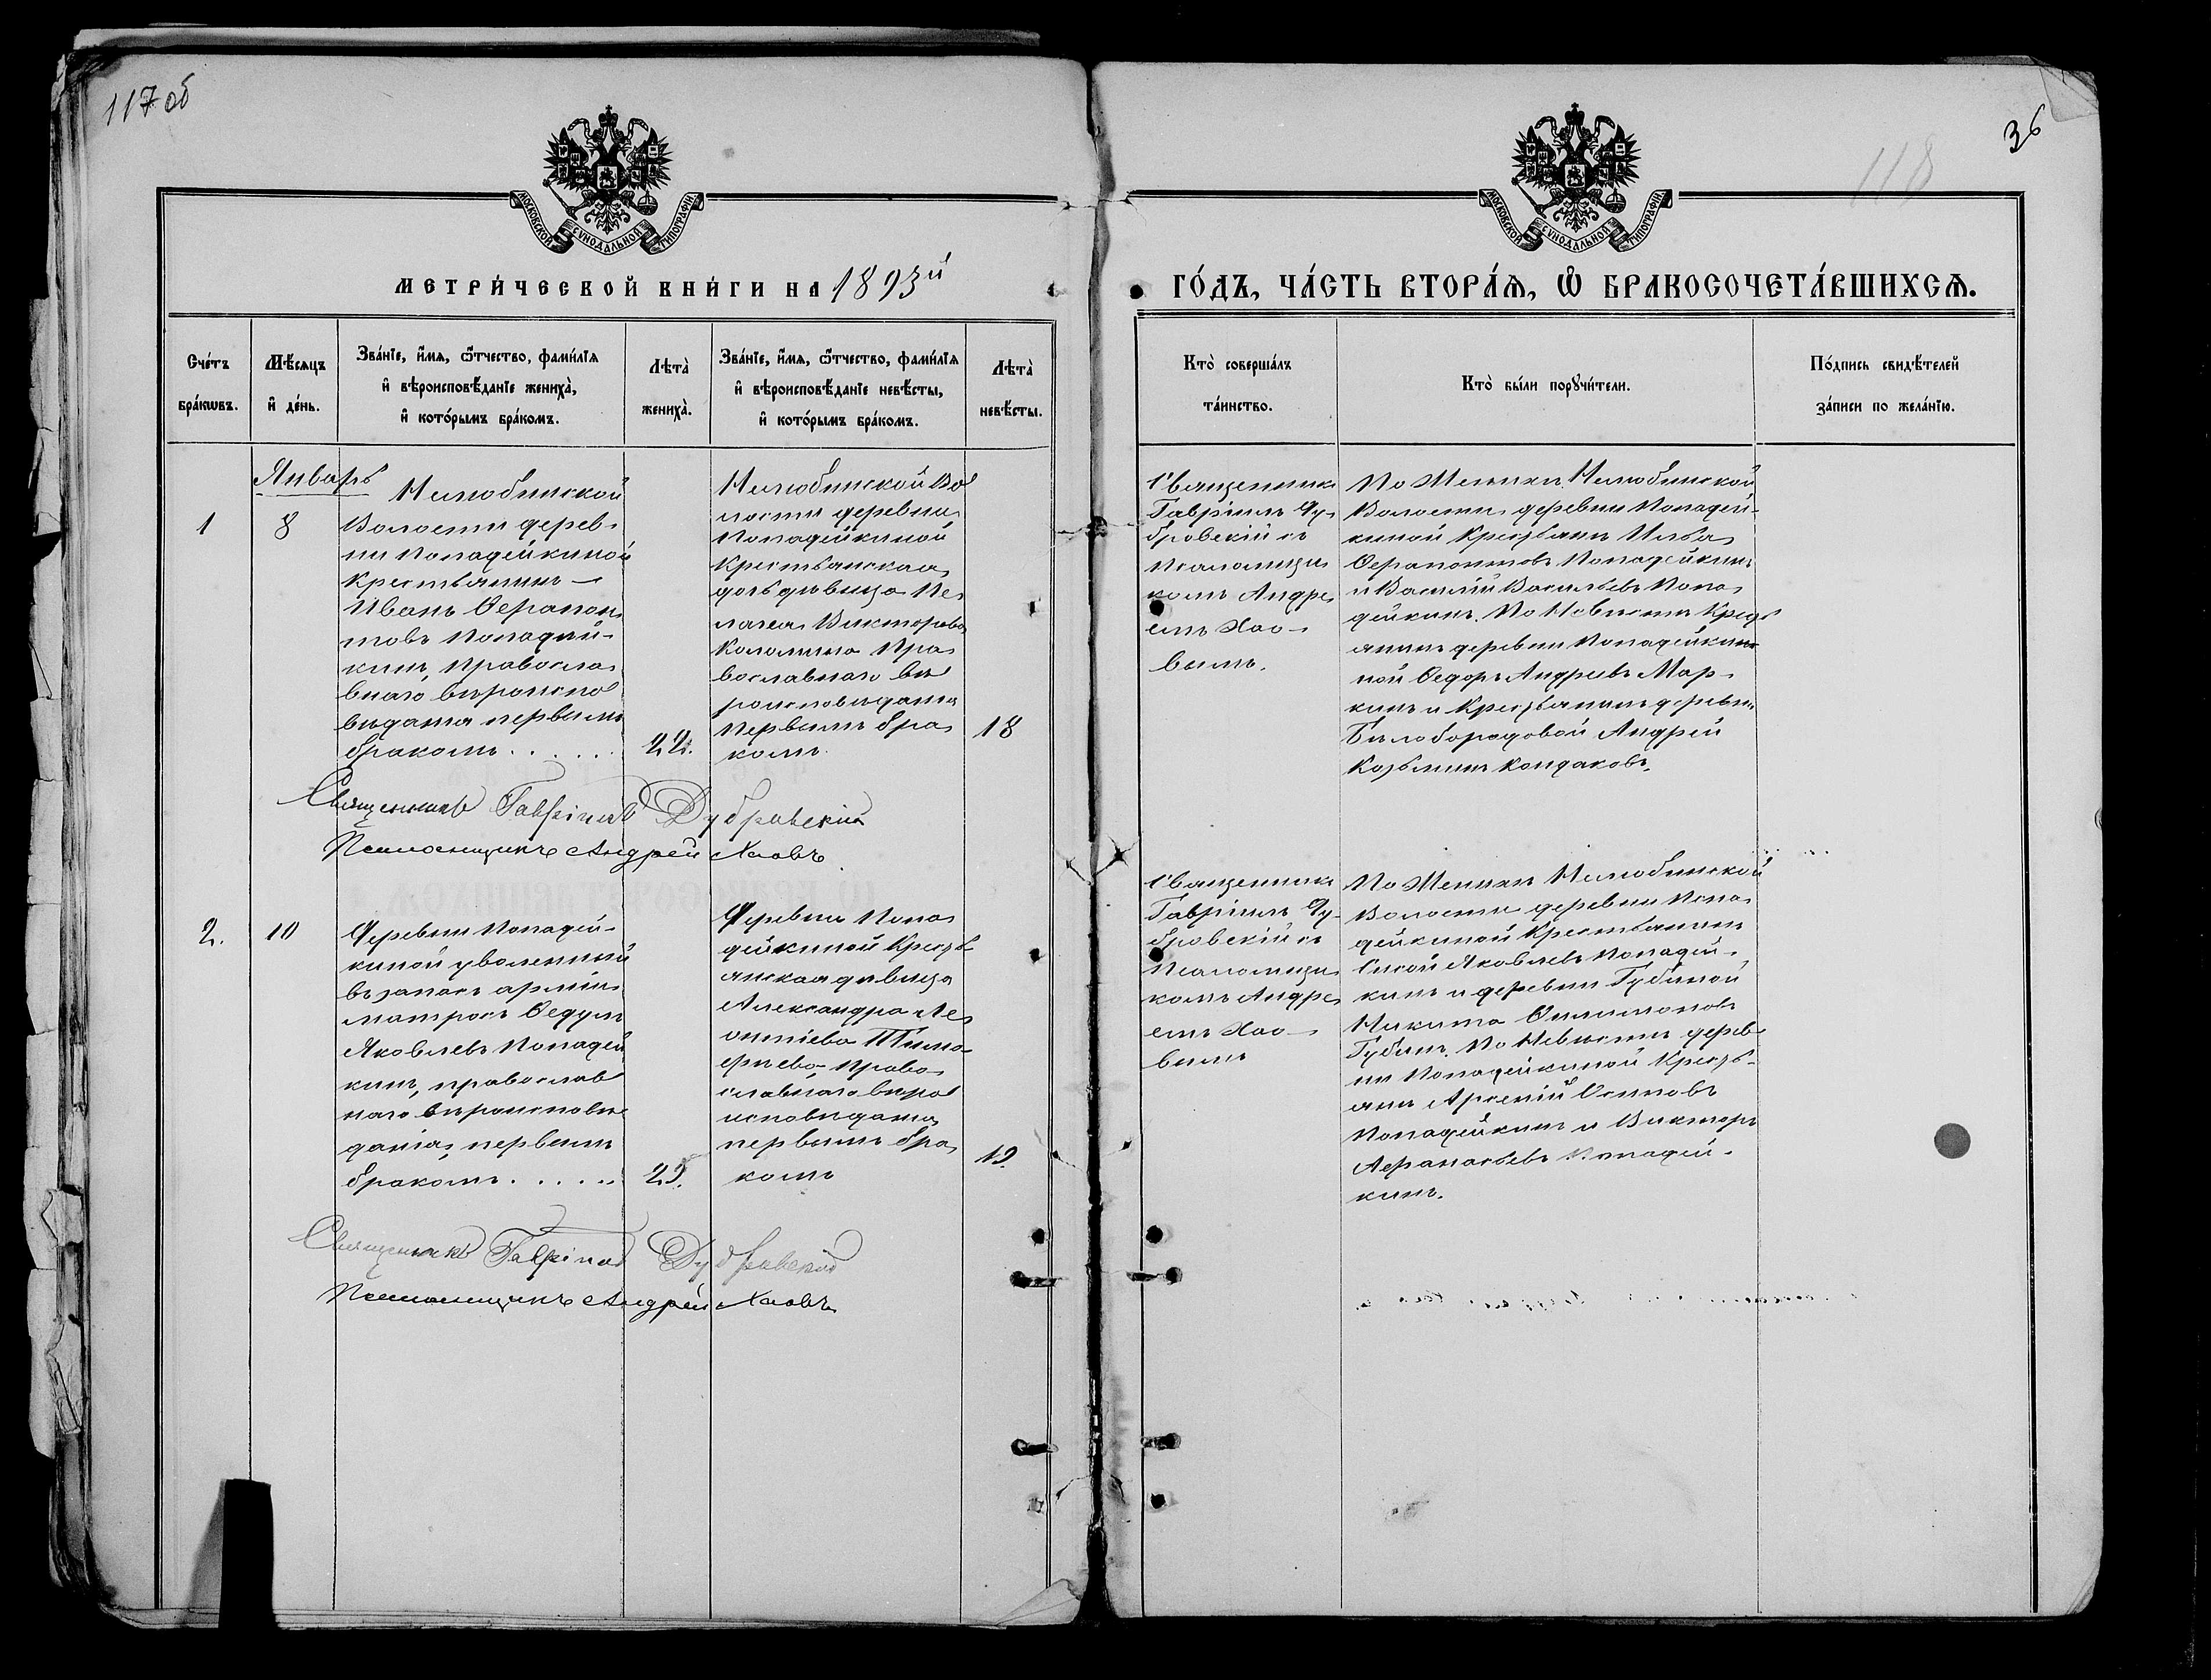 117 об
36
118
МОСКОВСКОЙ СѴНОДАЛЬНОЙ ТИПОГРАФІИ.
МОСКОВСКОЙ СѴНОДАЛЬНОЙ ТИПОГРАФІИ.
МЕТРИ́ЧЕСКОЙ КНИ́ГИ НА 1893й
ГО́ДЪ, ЧА́СТЬ ВТОРА́Ѧ, Ѽ БРАКОСОЧЕТА́ВШИХСѦ.
Сче́тъ
бра́кѡвъ.
Мѣ́сѧцъ
и҆ де́нь.
Зва́нїе, и҆́мѧ, ѻ҆́тчество, фами́лїѧ
и҆ вѣроисповѣ́данїе жениха̀,
и҆ кото́рымъ бра́комъ.
Лѣта̀
жениха̀.
Зва́нїе, и҆́мѧ, ѻ҆́тчество, фами́лїѧ
и҆ вѣроисповѣ́данїе невѣ́сты,
и҆ кото́рымъ бра́комъ.
Лѣта̀
невѣ́сты.
Кто̀ соверша́лъ
та́инство.
Кто̀ бы́ли порꙋчи́тели.
По́дпись свидѣ́телей
за́писи по жела́нїю.
Январь
1
8
Нилобинской
Волости дерев-
ни Попадейкиной
крестьянинъ
Иванъ Ѳерапон
товъ Попадей-
кинъ, правосла
внаго вѣроиспо
вѣданія первымъ
бракомъ . . . . .
22.
Нилобинской Во
лости деревни
Попадейкиной
крестьянская
дочь дѣвица Пе
лагея Викторова
Коломина пра
вославнаго вѣ
роисповѣданія
первымъ бра
комъ
18
Священникъ
Гавріилъ Ду
бровскій съ
псаломщи
комъ Андре
емъ Хло-
вымъ.
По Женихѣ Нилобинской
Волости деревни Попадей-
киной Крестьянъ Илья
Ѳерапонтовъ Попадейкинъ
и Василій Васильевъ Попа
дейкинъ. По Невѣстѣ Кресть
янинъ деревни Попадейки
ной Ѳедоръ Андреевъ Мар-
кинъ и Крестьянинъ деревни
Бѣлобородовой Андрей
Козьминъ Кондаковъ.
Священникъ Гавріилъ Дубровскій
Псаломщикъ Андрей Хловъ
2.
10
Деревни Попадей-
киной уволенный
въ запасъ арміи
матросъ Ѳедулъ
Яковлевъ Попадей
кинъ, православ
наго вѣроисповѣ
данія, первымъ
бракомъ . . . . .
25.
Деревни Попа
дейкиной Кресть
янская дѣвица
Александра Ле
онтіева Тимо
фѣева право
славнаго вѣро
исповѣданія
первымъ бра
комъ
19.
Священникъ
Гавріилъ Ду-
бровскій съ
псаломщи
комъ Андре
емъ Хло-
вымъ
По Женихѣ Нилобинской
Волости деревни Попа
дейкиной Крестьянинъ
Сысой Яковлевъ Попадей-
кинъ и деревни Губиной
Никита Филимоновъ
Губинъ. По Невѣстѣ дерев
ни Попадейкиной Кресть-
янъ Арсеній Осиповъ
Попадейкинъ и Викторъ
Аѳанасьевъ Попадей-
кинъ.
Священникъ Гавріилъ Дубровскій
Псаломщикъ Андрей Хловъ